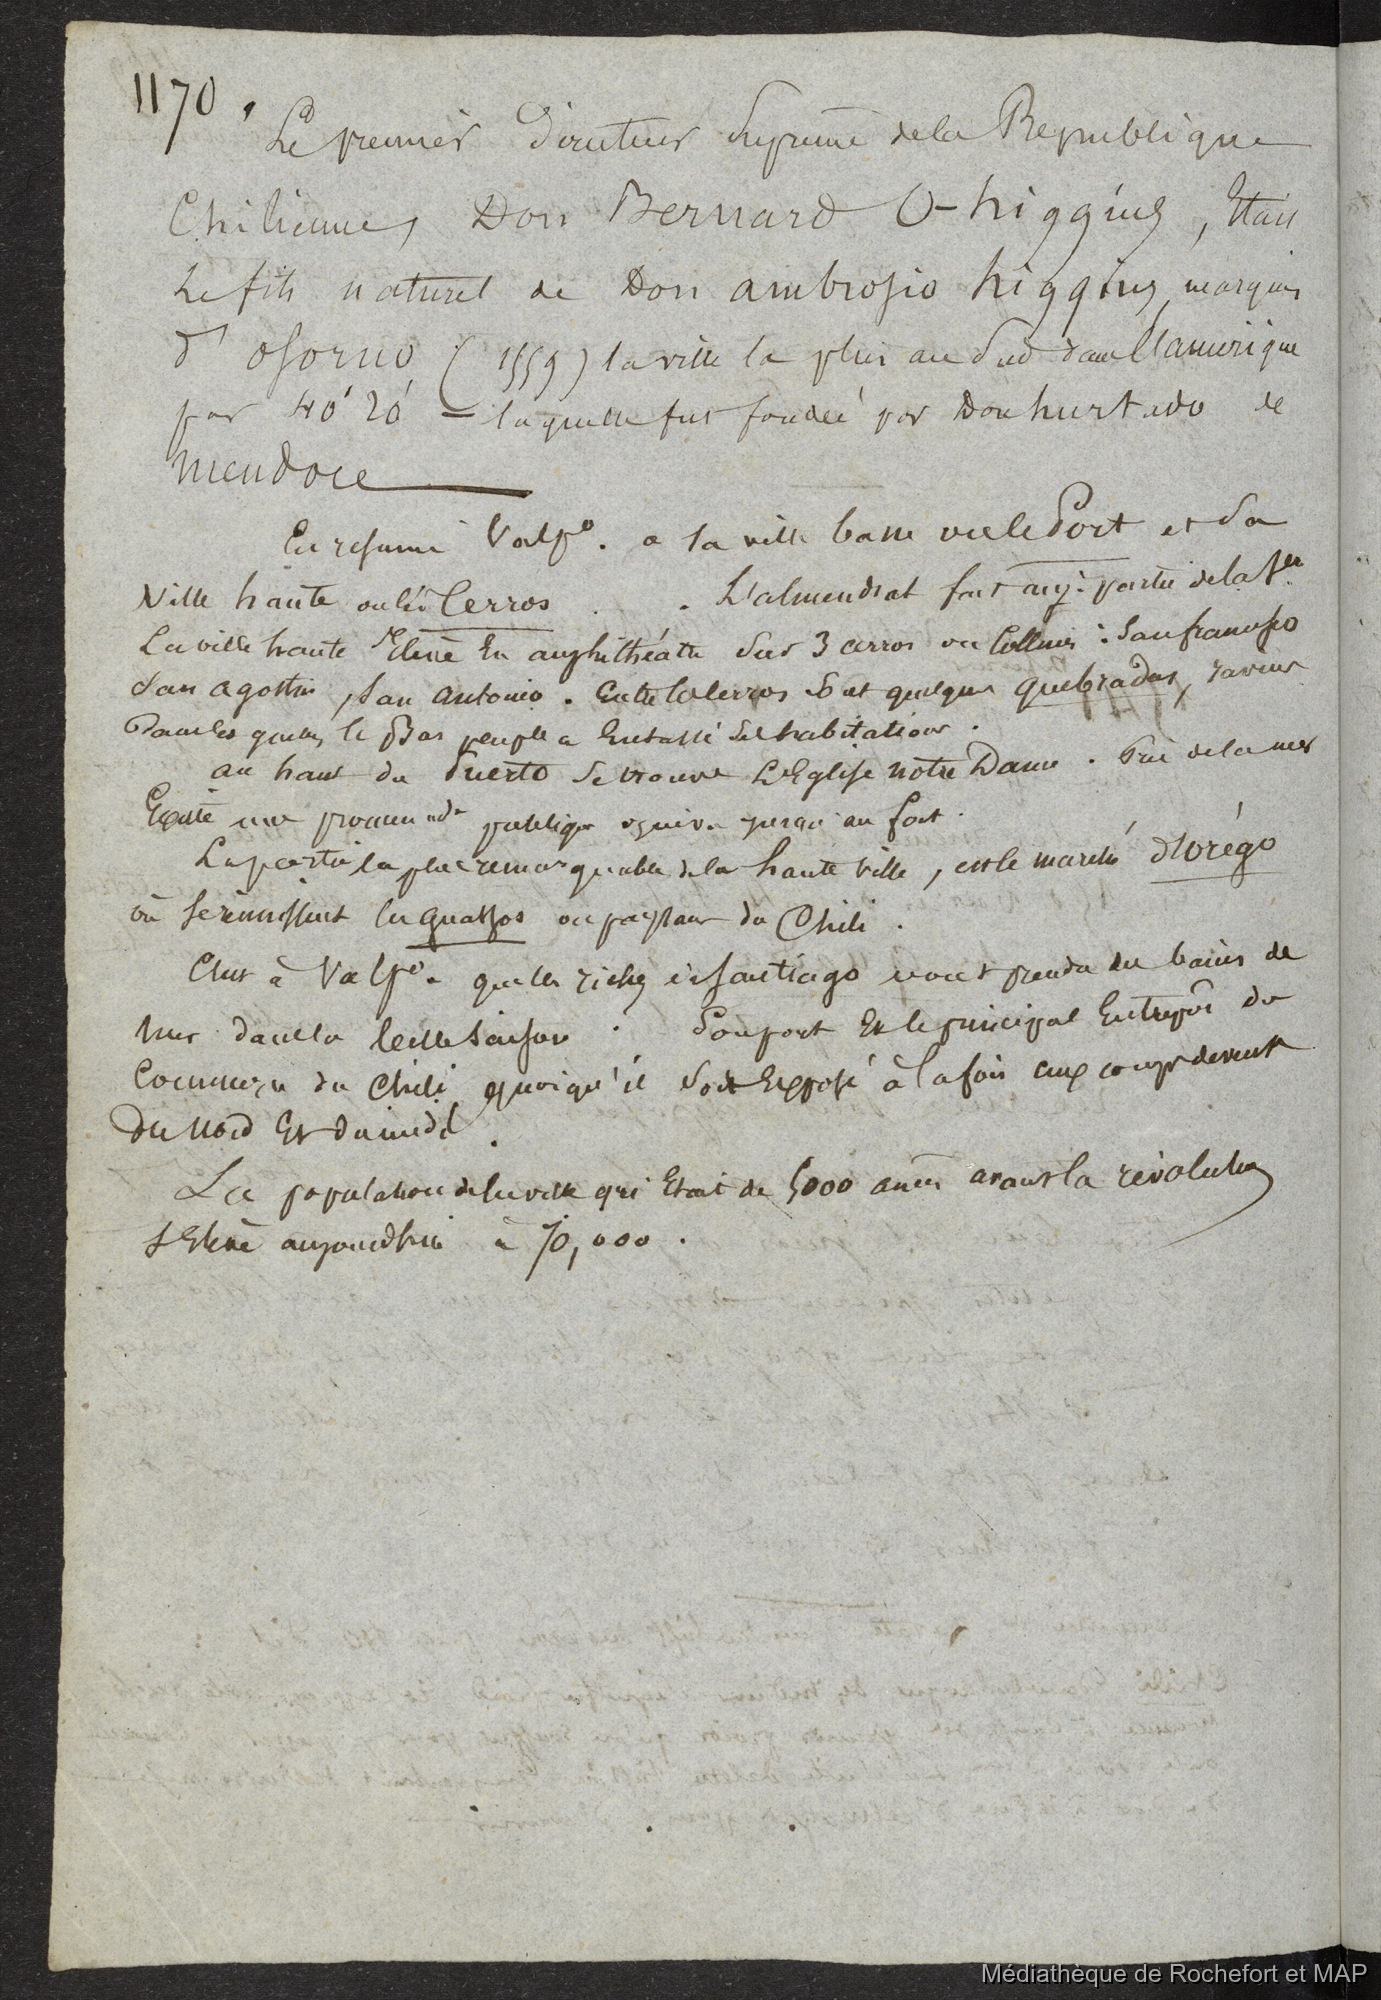 1170.
Le premier directeur Supreme de la Republique
Chilienne, Don Bernard O-higgins, Etait
Le fils naturel de Don ambrosio higgins, marquis
d'osorno (1559) la ville la plus au Sud dans l'amerique
par 40° 20' — laquelle fut fondée par Don hurtado de
mendoce
En resumé Valpo. a sa ville basse ou le Port et Sa
Ville haute ou les Cerros. L'almendral fait auj. partie de la 1ere
La ville haute s'Eleve En amphithéatre Sur 3 cerros ou Collines : San francisco
San agostin, San antonio. Entre les Cerros Sont quelques quebradas, ravins
Dans les quels le Bas peuple a Entassé Ses habitations.
au haut du Puerto Se trouve L'Eglise notre Dame. Près de la mer
Existe une promenade publique jusqu'au fort.
La partie la plus remarquable de la haute Ville, est le marché d'orégo
où se reunissent les guassos ou paysans du Chili.
C'est à Valpo. que les riches de Santiago vont prendre des bains de
mer dans la belle Saison. Son port Est le principal Entrepôt du
Commerce du Chili quoiqu'il Soit Exposé à la fois aux coups de vents
du Nord Et du midi.
La population de la ville qui Etait de 5000 ames avant la révolution
s'Eleve aujourdhui à 70,000.
Médiathèque de Rochefort et MAP